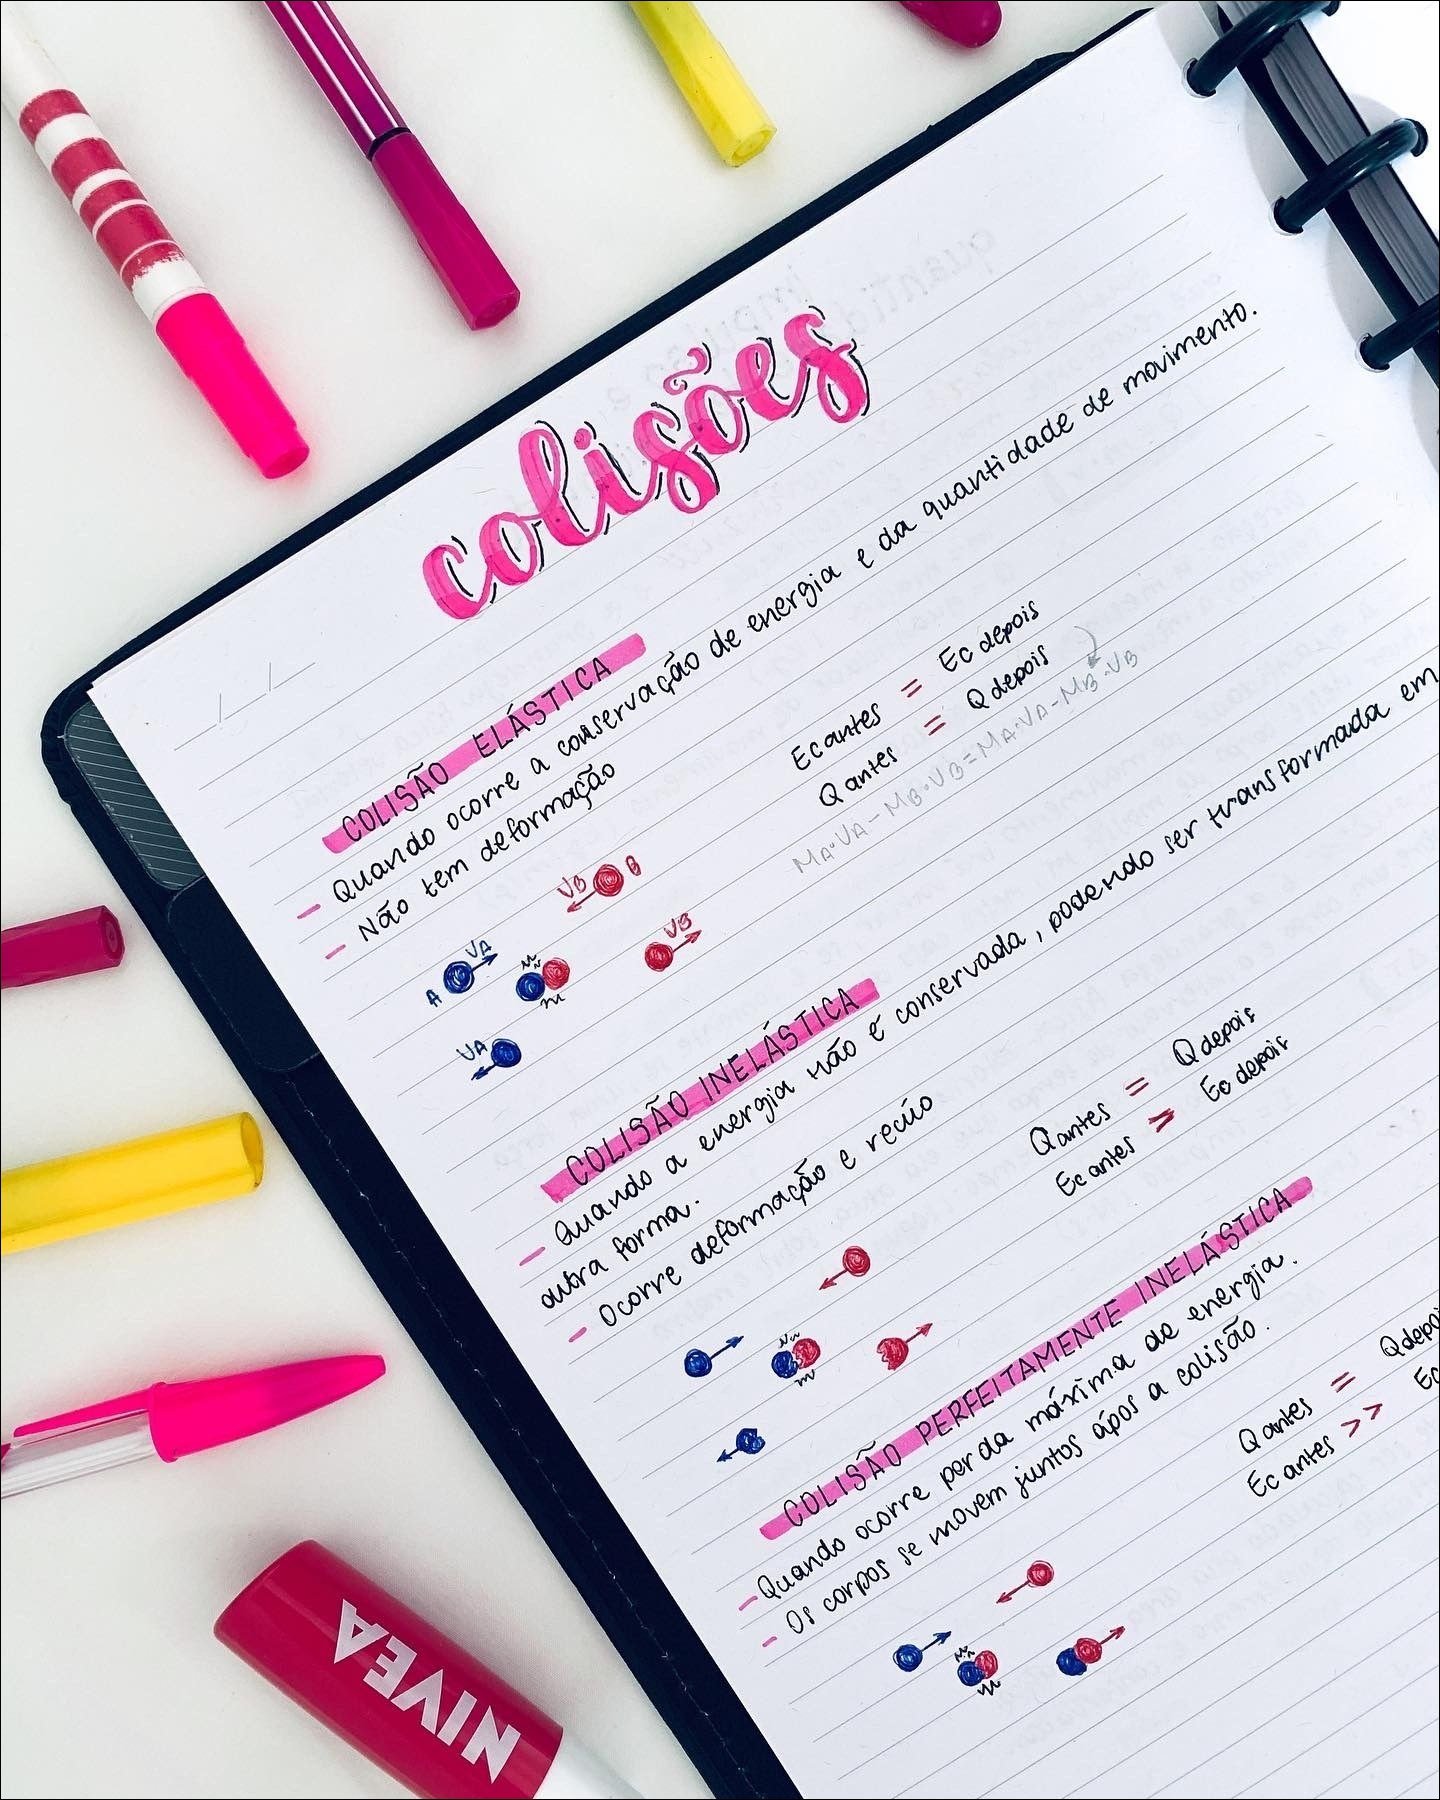 colisões
COLISÃO ELÁSTICA
- Quando ocorre a conservação de energia e da quantidade de movimento.
- Não tem deformação
Ec antes = Ec depois
Q antes = Q depois
MA·VA - MB·VB = MA·VA - MB·VB
VB B
A VA
VB
VA
COLISÃO INELÁSTICA
- Quando a energia não é conservada, podendo ser transformada em
outra forma.
- Ocorre deformação e recúo
Q antes = Q depois
Ec antes > Ec depois
COLISÃO PERFEITAMENTE INELÁSTICA
- Quando ocorre perda máxima de energia.
- Os corpos se movem juntos ápos a colisão.
Q antes = Q depoi
Ec antes >> Ec
NIVEA